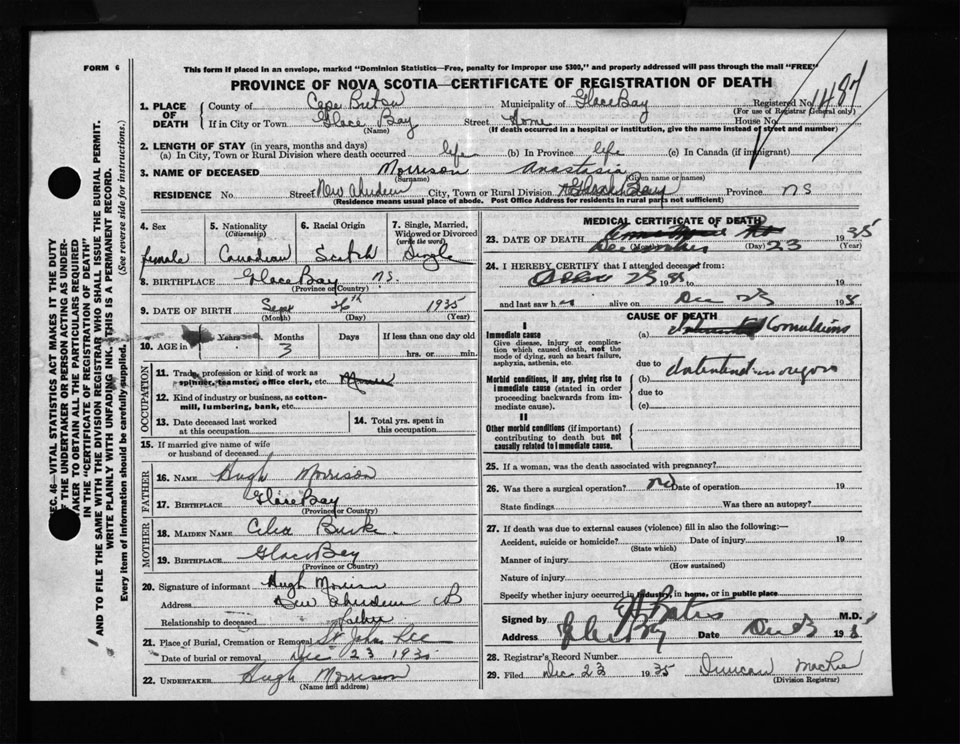 FORM 6
This form if placed in an envelope, marked "Dominion Statistics—Free, penalty for improper use $300," and properly addressed will pass through the mail "FREE"
PROVINCE OF NOVA SCOTIA—CERTIFICATE OF REGISTRATION OF DEATH
1. PLACE OF DEATH
County of Cape Breton Municipality of Glace Bay Registered No. 1487
(For use of Registrar General only)
If in City or Town Glace Bay Street Home House No.
(Name) (If death occurred in a hospital or institution, give the name instead of street and number)
2. LENGTH OF STAY (in years, months and days)
(a) In City, Town or Rural Division where death occurred life (b) In Province life (c) In Canada (if immigrant)
3. NAME OF DECEASED Morrison Anastasia
(Surname) (Given name or names)
RESIDENCE No. Street New Aberdeen City, Town or Rural Division Glace Bay Province NS
(Residence means usual place of abode. Post Office Address for residents in rural parts not sufficient)
4. Sex
female
5. Nationality
(Citizenship)
Canadian
6. Racial Origin
Scotch
7. Single, Married, Widowed or Divorced
(write the word)
Single
8. BIRTHPLACE Glace Bay N.S.
(Province or Country)
9. DATE OF BIRTH Sept 26th 1935
(Month) (Day) (Year)
10. AGE in Years Months Days If less than one day old
3 hrs. or min.
OCCUPATION
11. Trade, profession or kind of work as spinner, teamster, office clerk, etc.
12. Kind of industry or business, as cotton-mill, lumbering, bank, etc.
13. Date deceased last worked at this occupation
14. Total yrs. spent in this occupation
15. If married give name of wife or husband of deceased
FATHER
16. NAME Hugh Morrison
17. BIRTHPLACE Glace Bay
(Province or Country)
MOTHER
18. MAIDEN NAME Celia Burke
19. BIRTHPLACE Glace Bay
(Province or Country)
20. Signature of informant Hugh Morrison
Address New Aberdeen
Relationship to deceased father
21. Place of Burial, Cremation or Removal St John
Date of burial or removal Dec 23 1935
22. UNDERTAKER Hugh Morrison
(Name and address)
MEDICAL CERTIFICATE OF DEATH
23. DATE OF DEATH December 23 1935
(Day) (Year)
24. I HEREBY CERTIFY that I attended deceased from:
23 19 to 19
and last saw h alive on Dec 23 193
CAUSE OF DEATH
I
Immediate cause
Give disease, injury or complication which caused death, not the mode of dying, such as heart failure, asphyxia, asthenia, etc.
(a) Convulsions
due to
Morbid conditions, if any, giving rise to immediate cause (stated in order proceeding backwards from immediate cause).
(b)
due to
(c)
II
Other morbid conditions (if important) contributing to death but not causally related to immediate cause.
25. If a woman, was the death associated with pregnancy?
26. Was there a surgical operation? no Date of operation 19
State findings Was there an autopsy?
27. If death was due to external causes (violence) fill in also the following:—
Accident, suicide or homicide? Date of injury 19
(State which)
Manner of injury
(How sustained)
Nature of injury
Specify whether injury occurred in industry, in home, or in public place
Signed by M.D.
Address Glace Bay Date Dec 23 193
28. Registrar's Record Number
29. Filed Dec. 23 1935 Duncan
(Division Registrar)
SEC. 46—VITAL STATISTICS ACT MAKES IT THE DUTY OF THE UNDERTAKER OR PERSON ACTING AS UNDERTAKER TO OBTAIN ALL THE PARTICULARS REQUIRED IN THE "CERTIFICATE OF REGISTRATION OF DEATH" AND TO FILE THE SAME WITH THE DIVISION REGISTRAR WHO SHALL ISSUE THE BURIAL PERMIT.
WRITE PLAINLY WITH UNFADING INK. THIS IS A PERMANENT RECORD.
Every item of information should be carefully supplied. (See reverse side for instructions.)